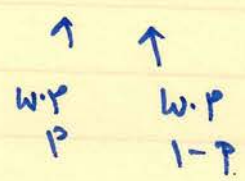 ↑ ↑
w.p w.p
p 1-p.